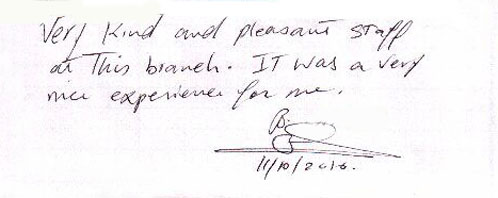 Very kind and pleasant staff
at This branch. IT was a very
nice experience for me.
11/10/2010.